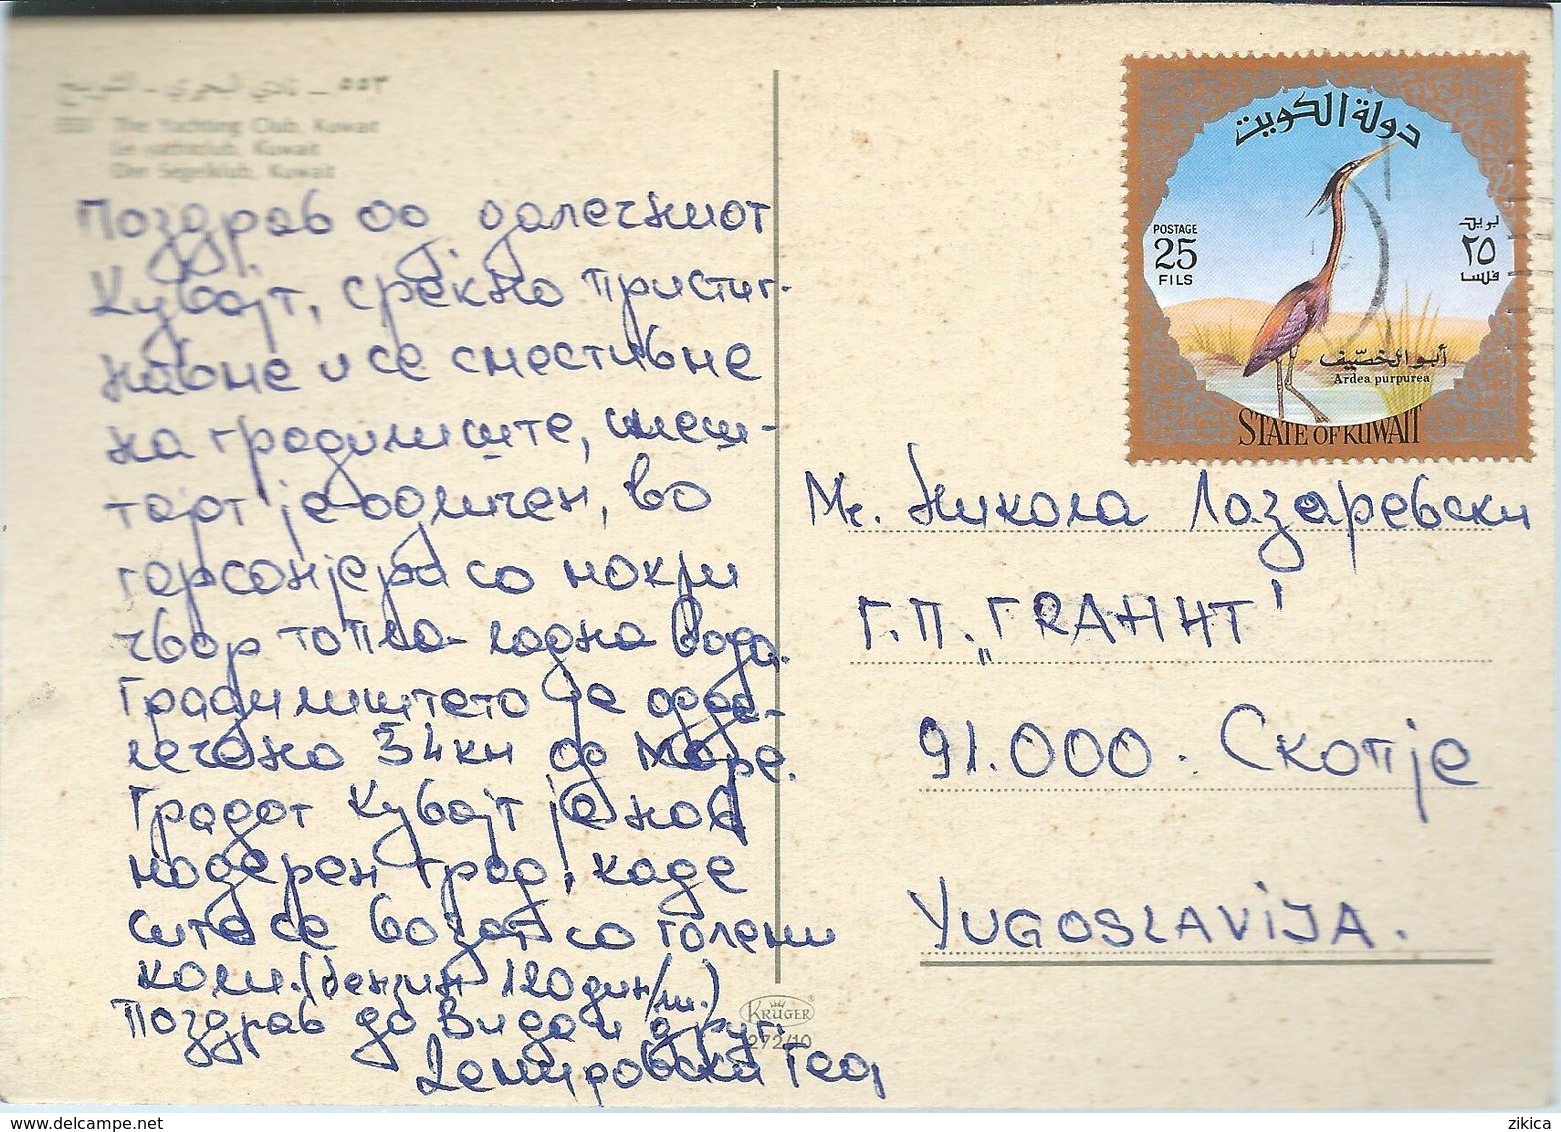 ٥٥٣ – نادي البحري – الشويخ
553 The Yachting Club, Kuwait
Le yachtclub, Kuwait
Der Segelklub, Kuwait
Поздрав од далечниот
Кувајт, среќно пристиг-
навме и се сместивме
на градилиште, смеш-
тајот је одличен, во
гарсонјера со мокри
чвор топла-ладна вода.
Градилиштето је одда-
лечено 34 км од море.
Градот Кувајт је нов
модерен град, каде
сите се возат со големи
коли. (бензин 120 дин/ли.)
Поздрав до Вида и друг.
Гео
دولة الكويت
POSTAGE
25
FILS
بريد
٢٥
فلسا
أبو الخصيف
Ardea purpurea
STATE OF KUWAIT
Никола Лазаревски
Г.П. „ГРАНИТ"
91.000. Скопје
YUGOSLAVIJA.
KRÜGER
272/10
www.delcampe.net
zikica